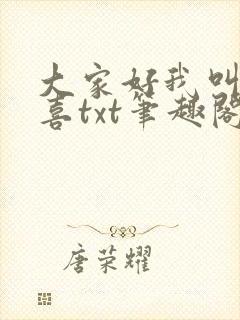 大家好我叫
喜txt笔趣阁
唐荣耀